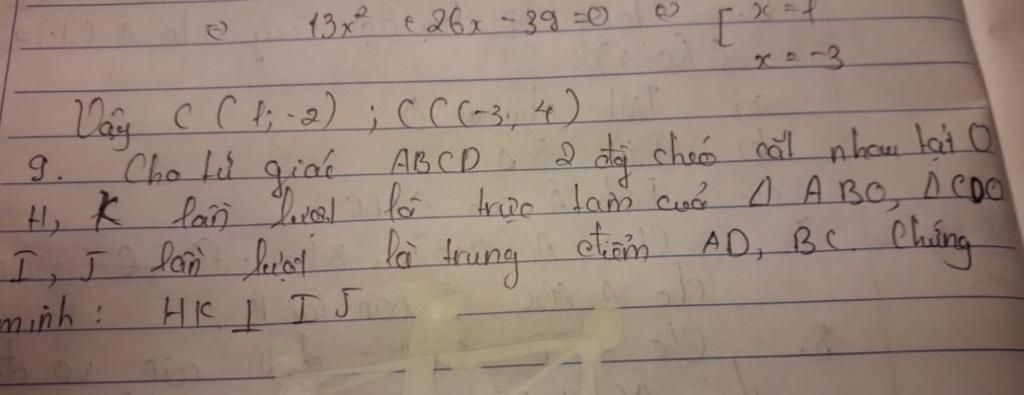 ⇔ 13x² + 26x - 39 = 0 ⇔ [ x = 1
x = -3
Vậy C (1; -2) ; C (-3, 4)
9. Cho tứ giác ABCD. 2 đg chéo cắt nhau tại O
H, K lần lượt là trực tâm của Δ ABO, Δ CDO
I, J lần lượt là trung điểm AD, BC. Chứng
minh: HK ⊥ IJ